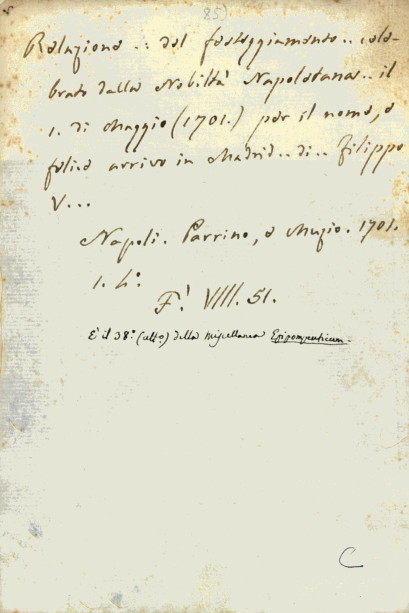 85)
Relazione .. del festeggiamento .. cele-
brato dalla Nobiltà Napoletana .. il
1. di Maggio (1701.) per il nome, e
felice arrivo in Madrid .. di .. Filippo
V...
Napoli. Parrino, e Muzio. 1701.
1. 4°.
F. VIII. 51.
È il 38° (ulto) della Miscellanea Epipompeuticum.
C